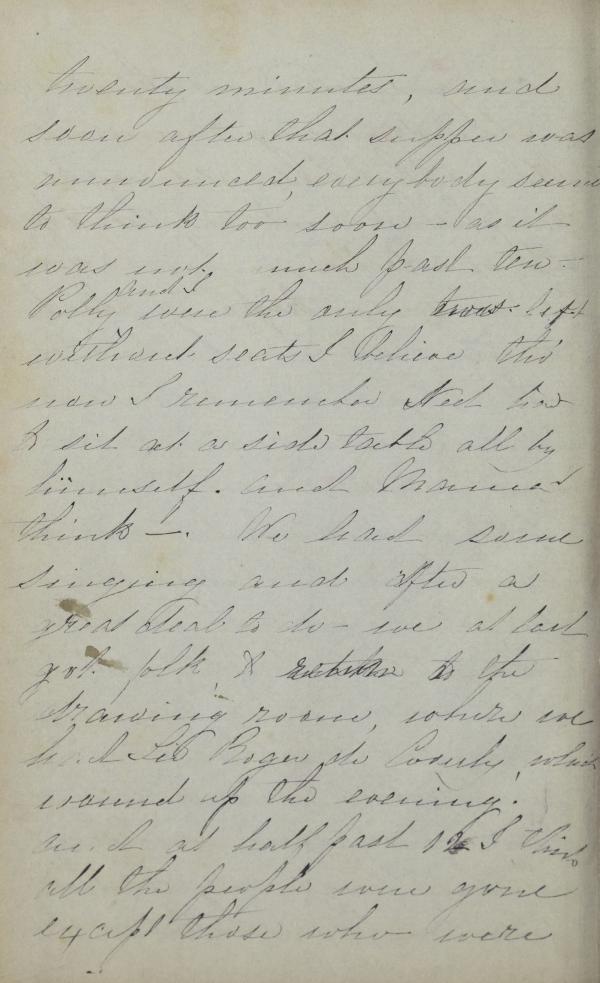 twenty minutes, and
soon after that supper was
announced, everybody seems
to think too soon - as it
was not much past ten -
and I
Polly were the only two left
without seats I believe tho'
now I remember Ned had
to sit at a side table all by
himself. and Mama I
think -. We had some
singing and after a
great deal to do - we at last
got folk to return to the
drawing room, where we
had Sir Roger de Coverly, which
wound up the evening.
and at half past 12 I think
all the people were gone
except those who were